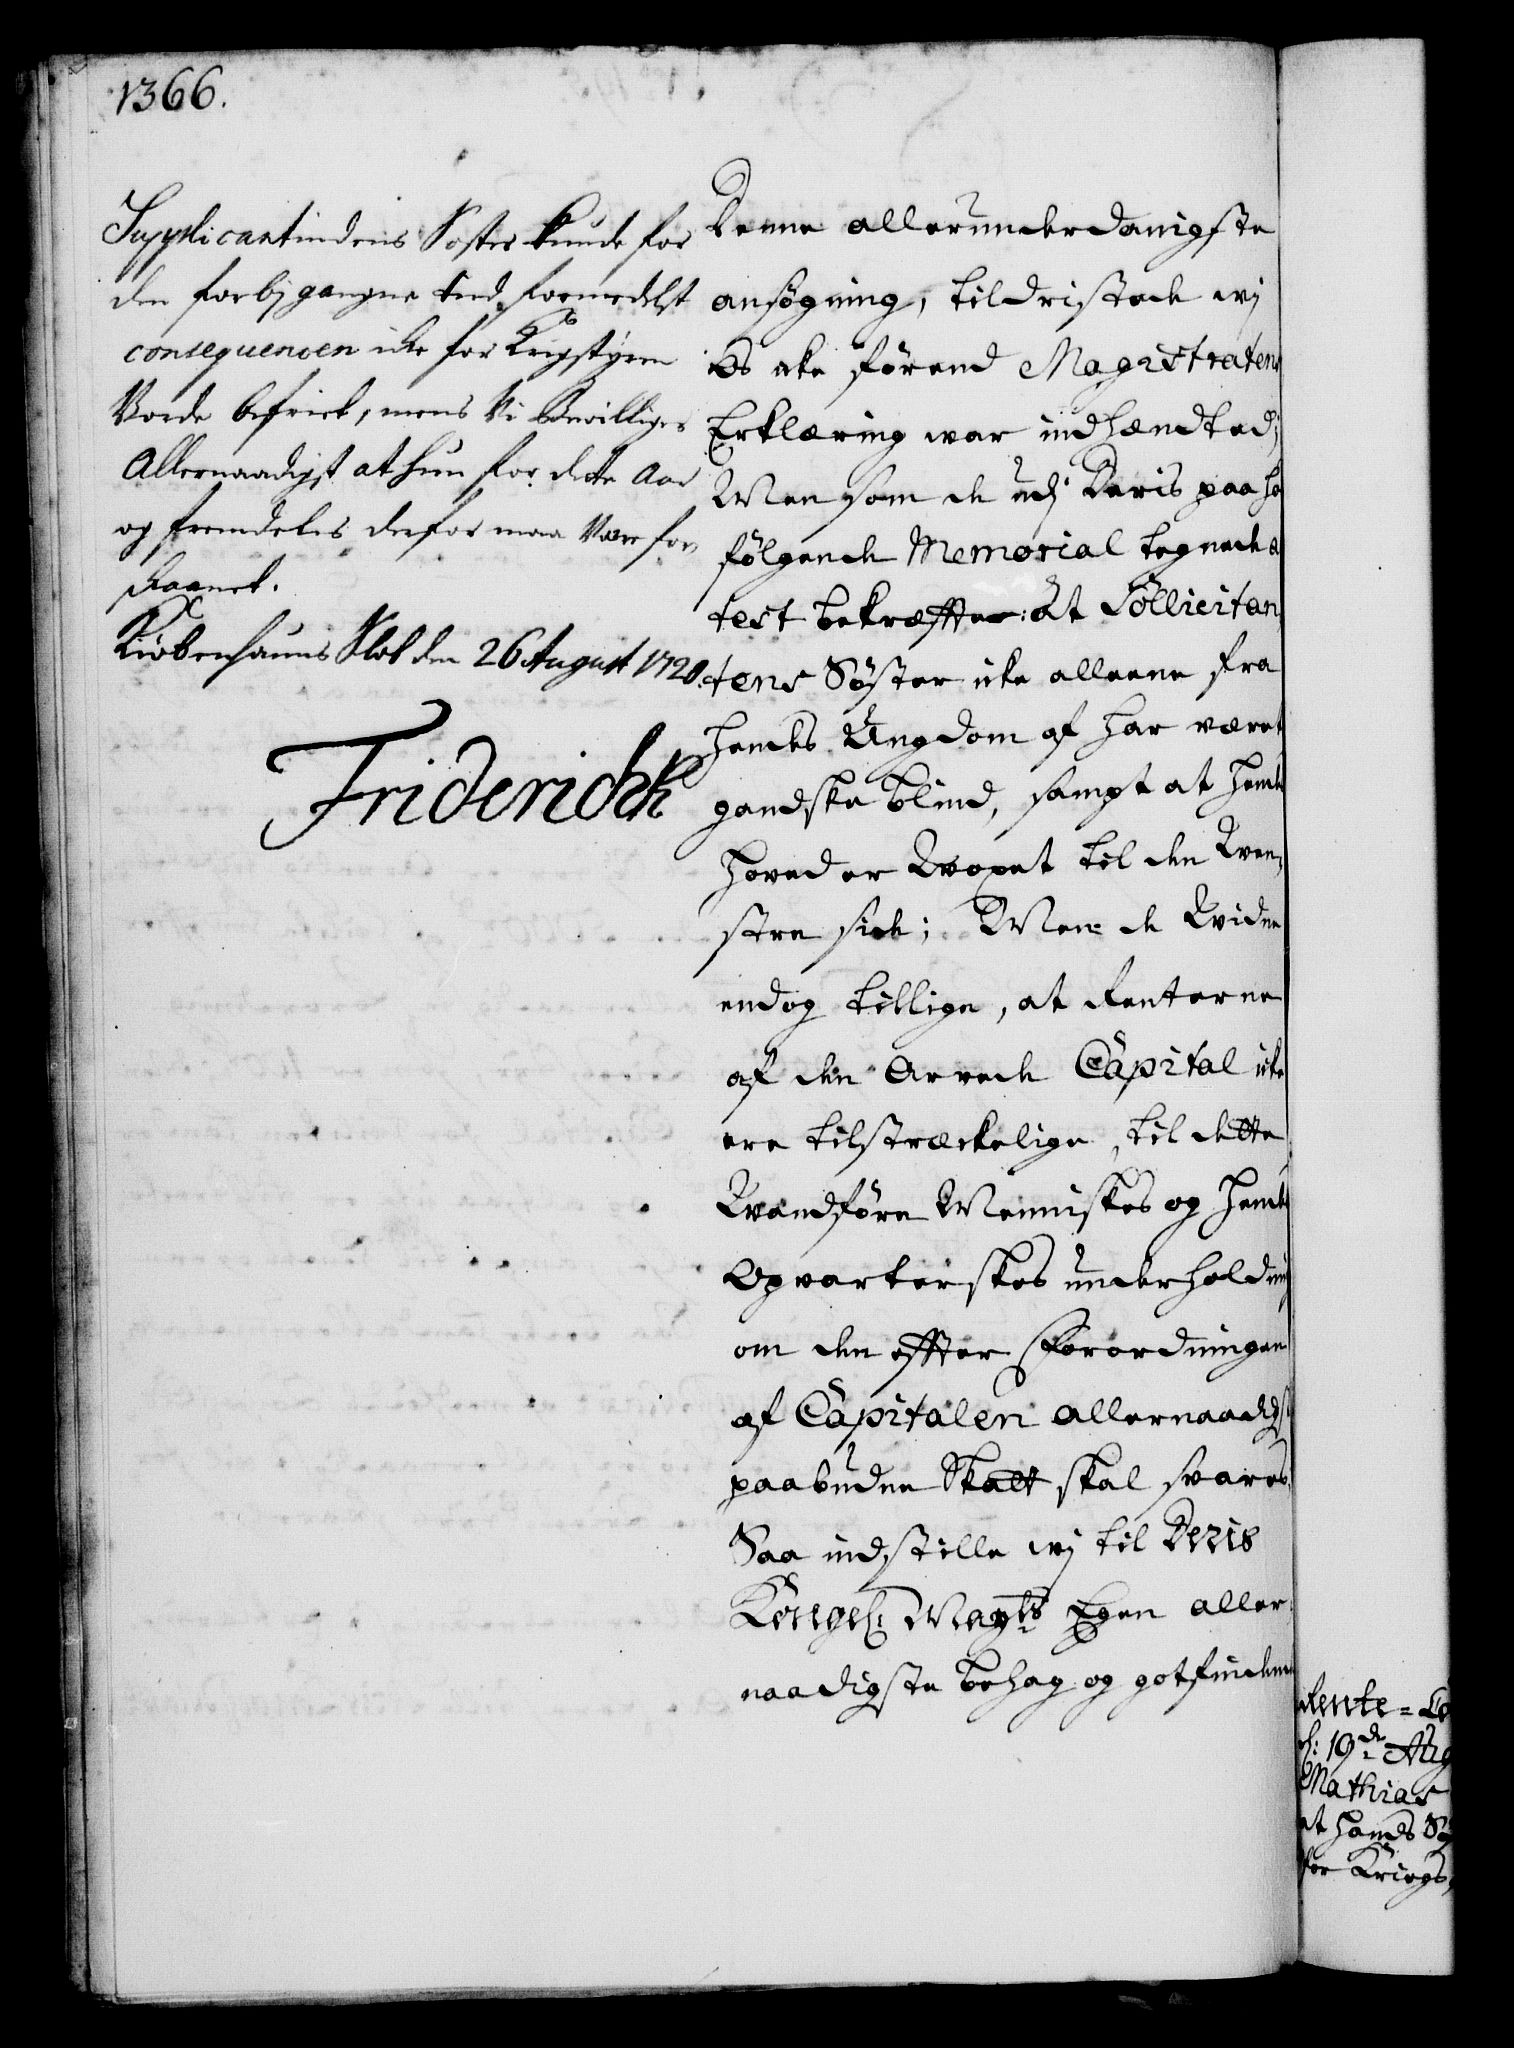 1366.
Supplicantindens Søster kunde for
den forbj gangne tud formedelst
consequencen icke for Krigstyren
Vorde befriet, mens Vi bevilliger
Allernaadigst at hun for dette Aar
og fremdeles derfor maa være for
skaanet.
Kiøbenhauns Slot den 26 August 1720.
Friderich R
Denne allerunderdanigste
ansøgning, tildristede wj
Os icke førend Magistratens
Erklæring war indhændted;
Men som de udj Deris paa ho
følgende Memorial tegnede a
test bekræffter: At Sollicitan
tens Søster icke alleene fra
hendes Ungdom af har wæret
gandske blind, sampt at hendes
hoved er Woxet til den Wen,
stre side; Men de Widne
endog tillige, at Renterne
af den Arvede Capital icke
ere tilstræckelige, til dette
Wandføre Menniskes og hendes
Opvarterskes underholdning
om den effter Forordningen
af Capitalen allernaadigst
paabudne Skatt skal svares,
Saa indstille wj til Deris
Kongel: Mayts Egen aller,
naadigste behag og gotfindende
Rente=
19de Aug
Mathias
at hands Sø
for Kriegs,